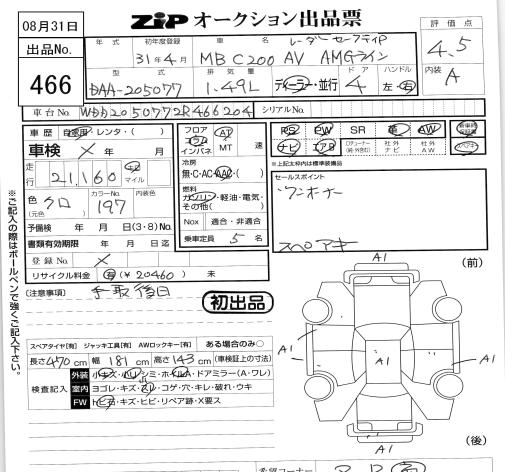 08月31日
出品No.
466
ZiP オークション出品票
評価点
4.5
内装
A
年式
初年度登録
31年4月
車名
レーダーセーフティP
MB C200 AV AMGライン
型式
DAA-205077
排気量
1.49L
ディーラー・並行
ドア
4
ハンドル
左・右
車台No.
WDD2050772R466204
シリアルNo.
車歴
自家用・レンタ・( )
車検
× 年 月
走行
21,160
キロ
マイル
色
(元色)
クロ
カラーNo.
197
内装色
予備検 年 月 日(3・8)No.
書類有効期限 年 月 日迄
登録No. ×
リサイクル料金 有(¥20460) 未
フロア
コラム
インパネ
AT
MT
速
冷房
無・C・AC・AAC( )
燃料
ガソリン・軽油・電気・
その他( )
Nox 適合・非適合
乗車定員 5 名
PS PW SR 革 AW
ナビ エアB
社外ナビ
社外AW
※上記太枠内は標準装備品
セールスポイント
ワンオーナー
スペアキ
(注意事項)
手取後日
初出品
※ご記入の際はボールペンで強くご記入下さい。
スペアタイヤ[有] ジャッキ工具[有] AWロックキー[有] ある場合のみ○
長さ470cm 幅 181 cm 高さ143cm(車検証上の寸法)
検査記入
外装 小キズ・ハリ・シミ・ホイルA・ドアミラー(A・ワレ)
室内 ヨゴレ・キズ・スレ・コゲ・穴・キレ・破れ・ウキ
FW トビ石・キズ・ヒビ・リペア跡・X要ス
(前)
A1
A1
A1
A1
A1
(後)
希望コーナー